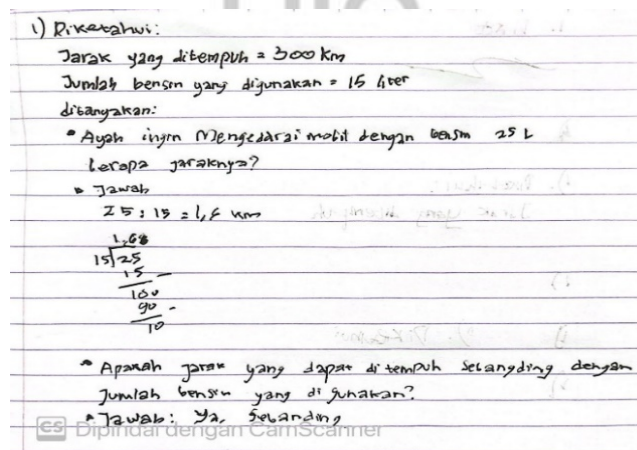 1) Diketahui:
Jarak yang ditempuh = 300 km
Jumlah bensin yang digunakan = 15 liter
ditanyakan:
• Ayah ingin Mengedarai mobil dengan bensin 25 L
berapa jaraknya?
• Jawab
25 : 15 = 1,6 km
1,66
15 25
15 -
100
90 -
10
• Apakah jarak yang dapat di tempuh sebangding dengan
Jumlah bensin yang di gunakan?
• Jawab : Ya, Sebanding
CS Dipindai dengan CamScanner